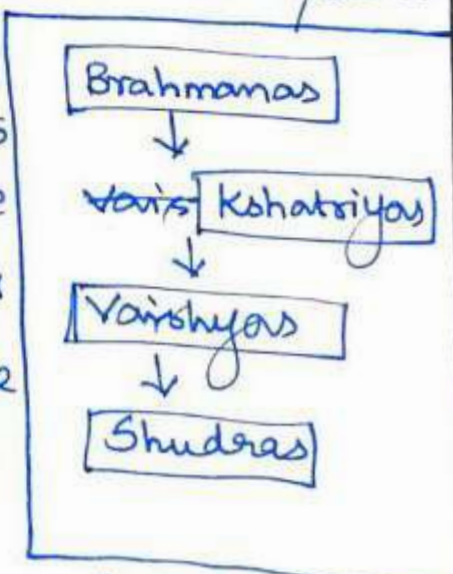 Brahmanas
Vais Kshatriyas
Vaishyas
Shudras